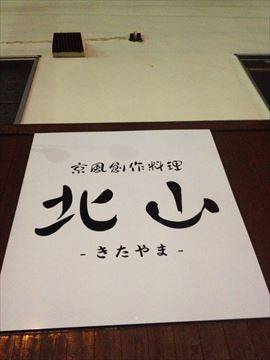 京風創作料理
北山
- きたやま -